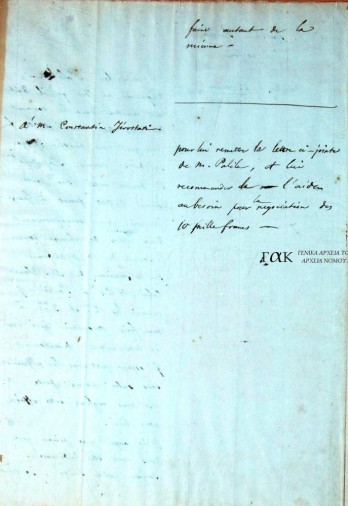 faire autant de la
mienne —
à M. Constantin
pour lui remettre la lettre ci-jointe
de M. et lui
recommander de l'aider
au besoin pour la négociation des
10 mille francs —
ΓΑΚ ΓΕΝΙΚΑ ΑΡΧΕΙΑ ΤΟ
ΑΡΧΕΙΑ ΝΟΜΟΥ